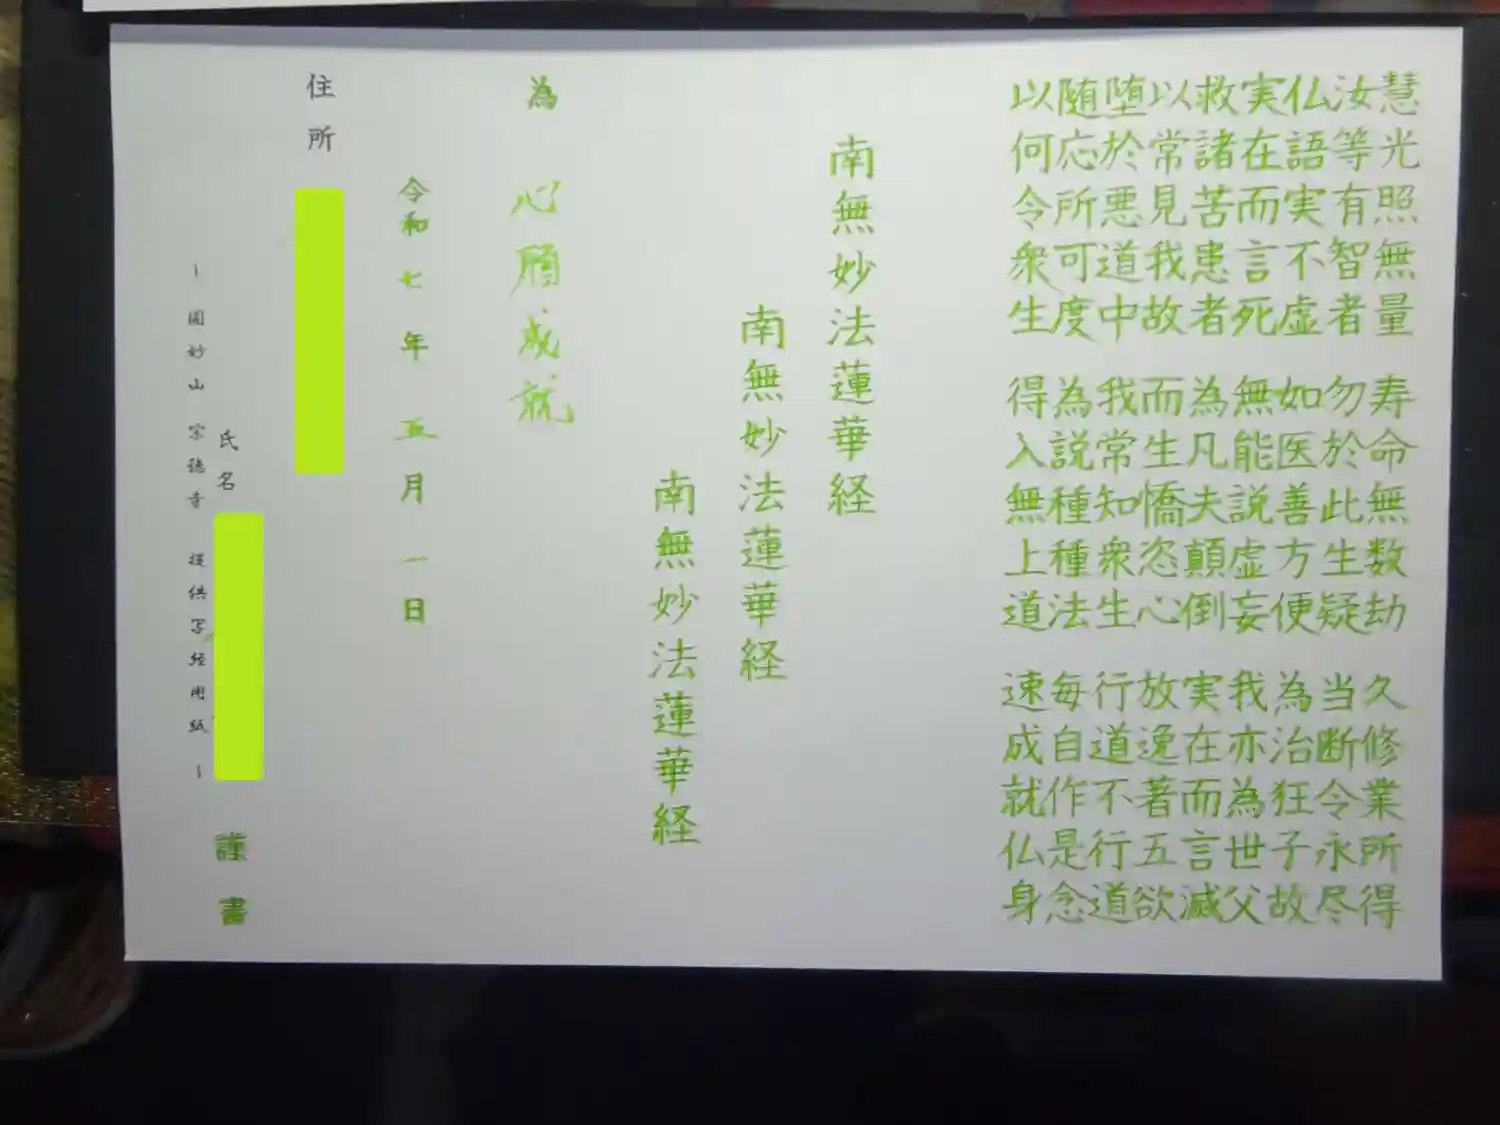 慧光照無量 寿命無数劫 久修業所得
汝等有智者 勿於此生疑 当断令永尽
仏語実不虚 如医善方便 為治狂子故
実在而言死 無能説虚妄 我亦為世父
救諸苦患者 為凡夫顛倒 実在而言滅
以常見我故 而生憍恣心 放逸著五欲
堕於悪道中 我常知衆生 行道不行道
随応所可度 為説種種法 毎自作是念
以何令衆生 得入無上道 速成就仏身
南無妙法蓮華経
南無妙法蓮華経
南無妙法蓮華経
為 心願成就
令和七年五月一日
住所
氏名 謹書
ー圓妙山 宗徳寺 提供写経用紙ー